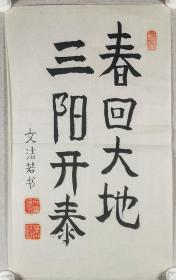 春回大地
三阳开泰
文洁若书